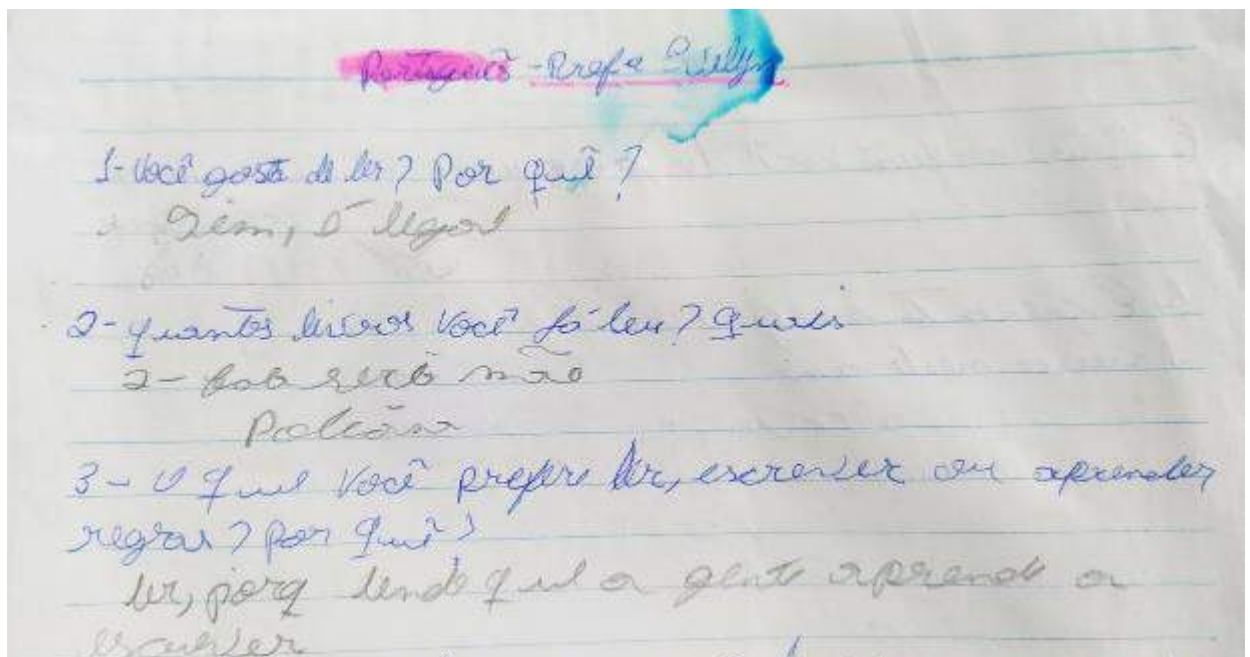 Português - Profª Evilyn
1- Você gosta de ler? Por quê?
Sim, É legal
2- quantos livros você já leu? Quais
2- não
3- O que você prefere ler, escrever ou aprender
regras? por quê?
ler, porq lendo que a gente aprende a
escrever